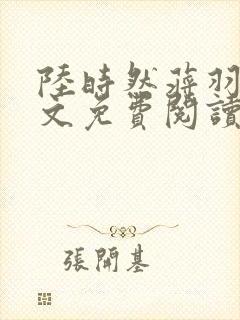 陸時然蔣羽
文免費閱讀
張開基